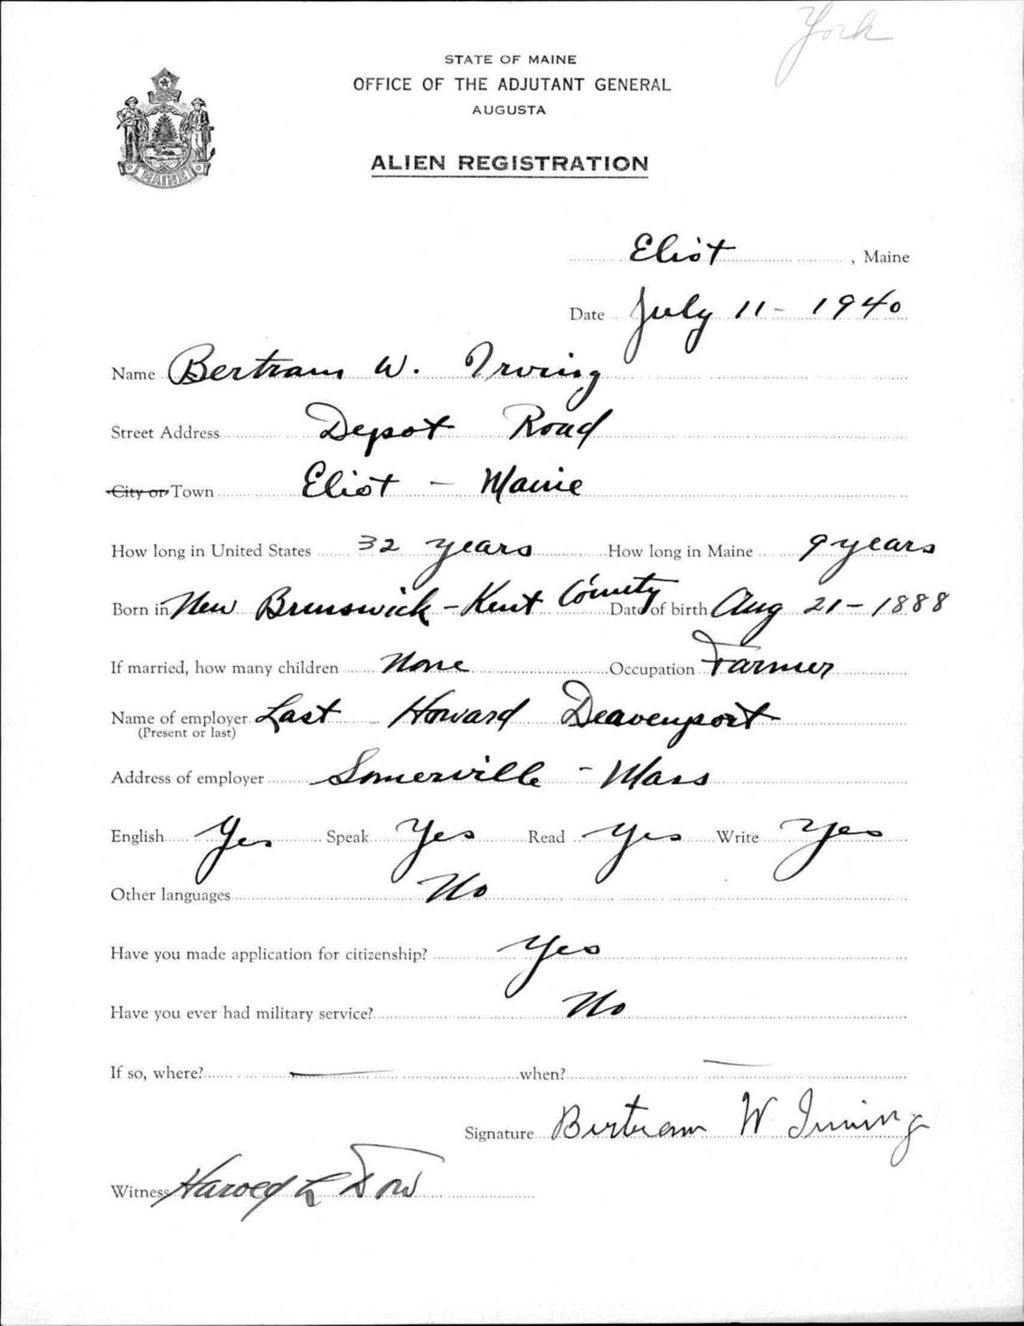 York
STATE OF MAINE
OFFICE OF THE ADJUTANT GENERAL
AUGUSTA
ALIEN REGISTRATION
MAINE
Eliot, Maine
Date July 11 - 1940
Name Bertram W. Irving
Street Address Depot Road
City or Town Eliot - Maine
How long in United States 32 years How long in Maine 9 years
Born in New Brunswick - Kent County Date of birth Aug 21 - 1888
If married, how many children None Occupation Farmer
Name of employer Last - Howard Deavenport
(Present or last)
Address of employer Somerville - Mass
English Yes Speak Yes Read Yes Write Yes
Other languages No
Have you made application for citizenship? Yes
Have you ever had military service? No
If so, where? — when? —
Signature Bertram W Irving
Witness Harold L Dow